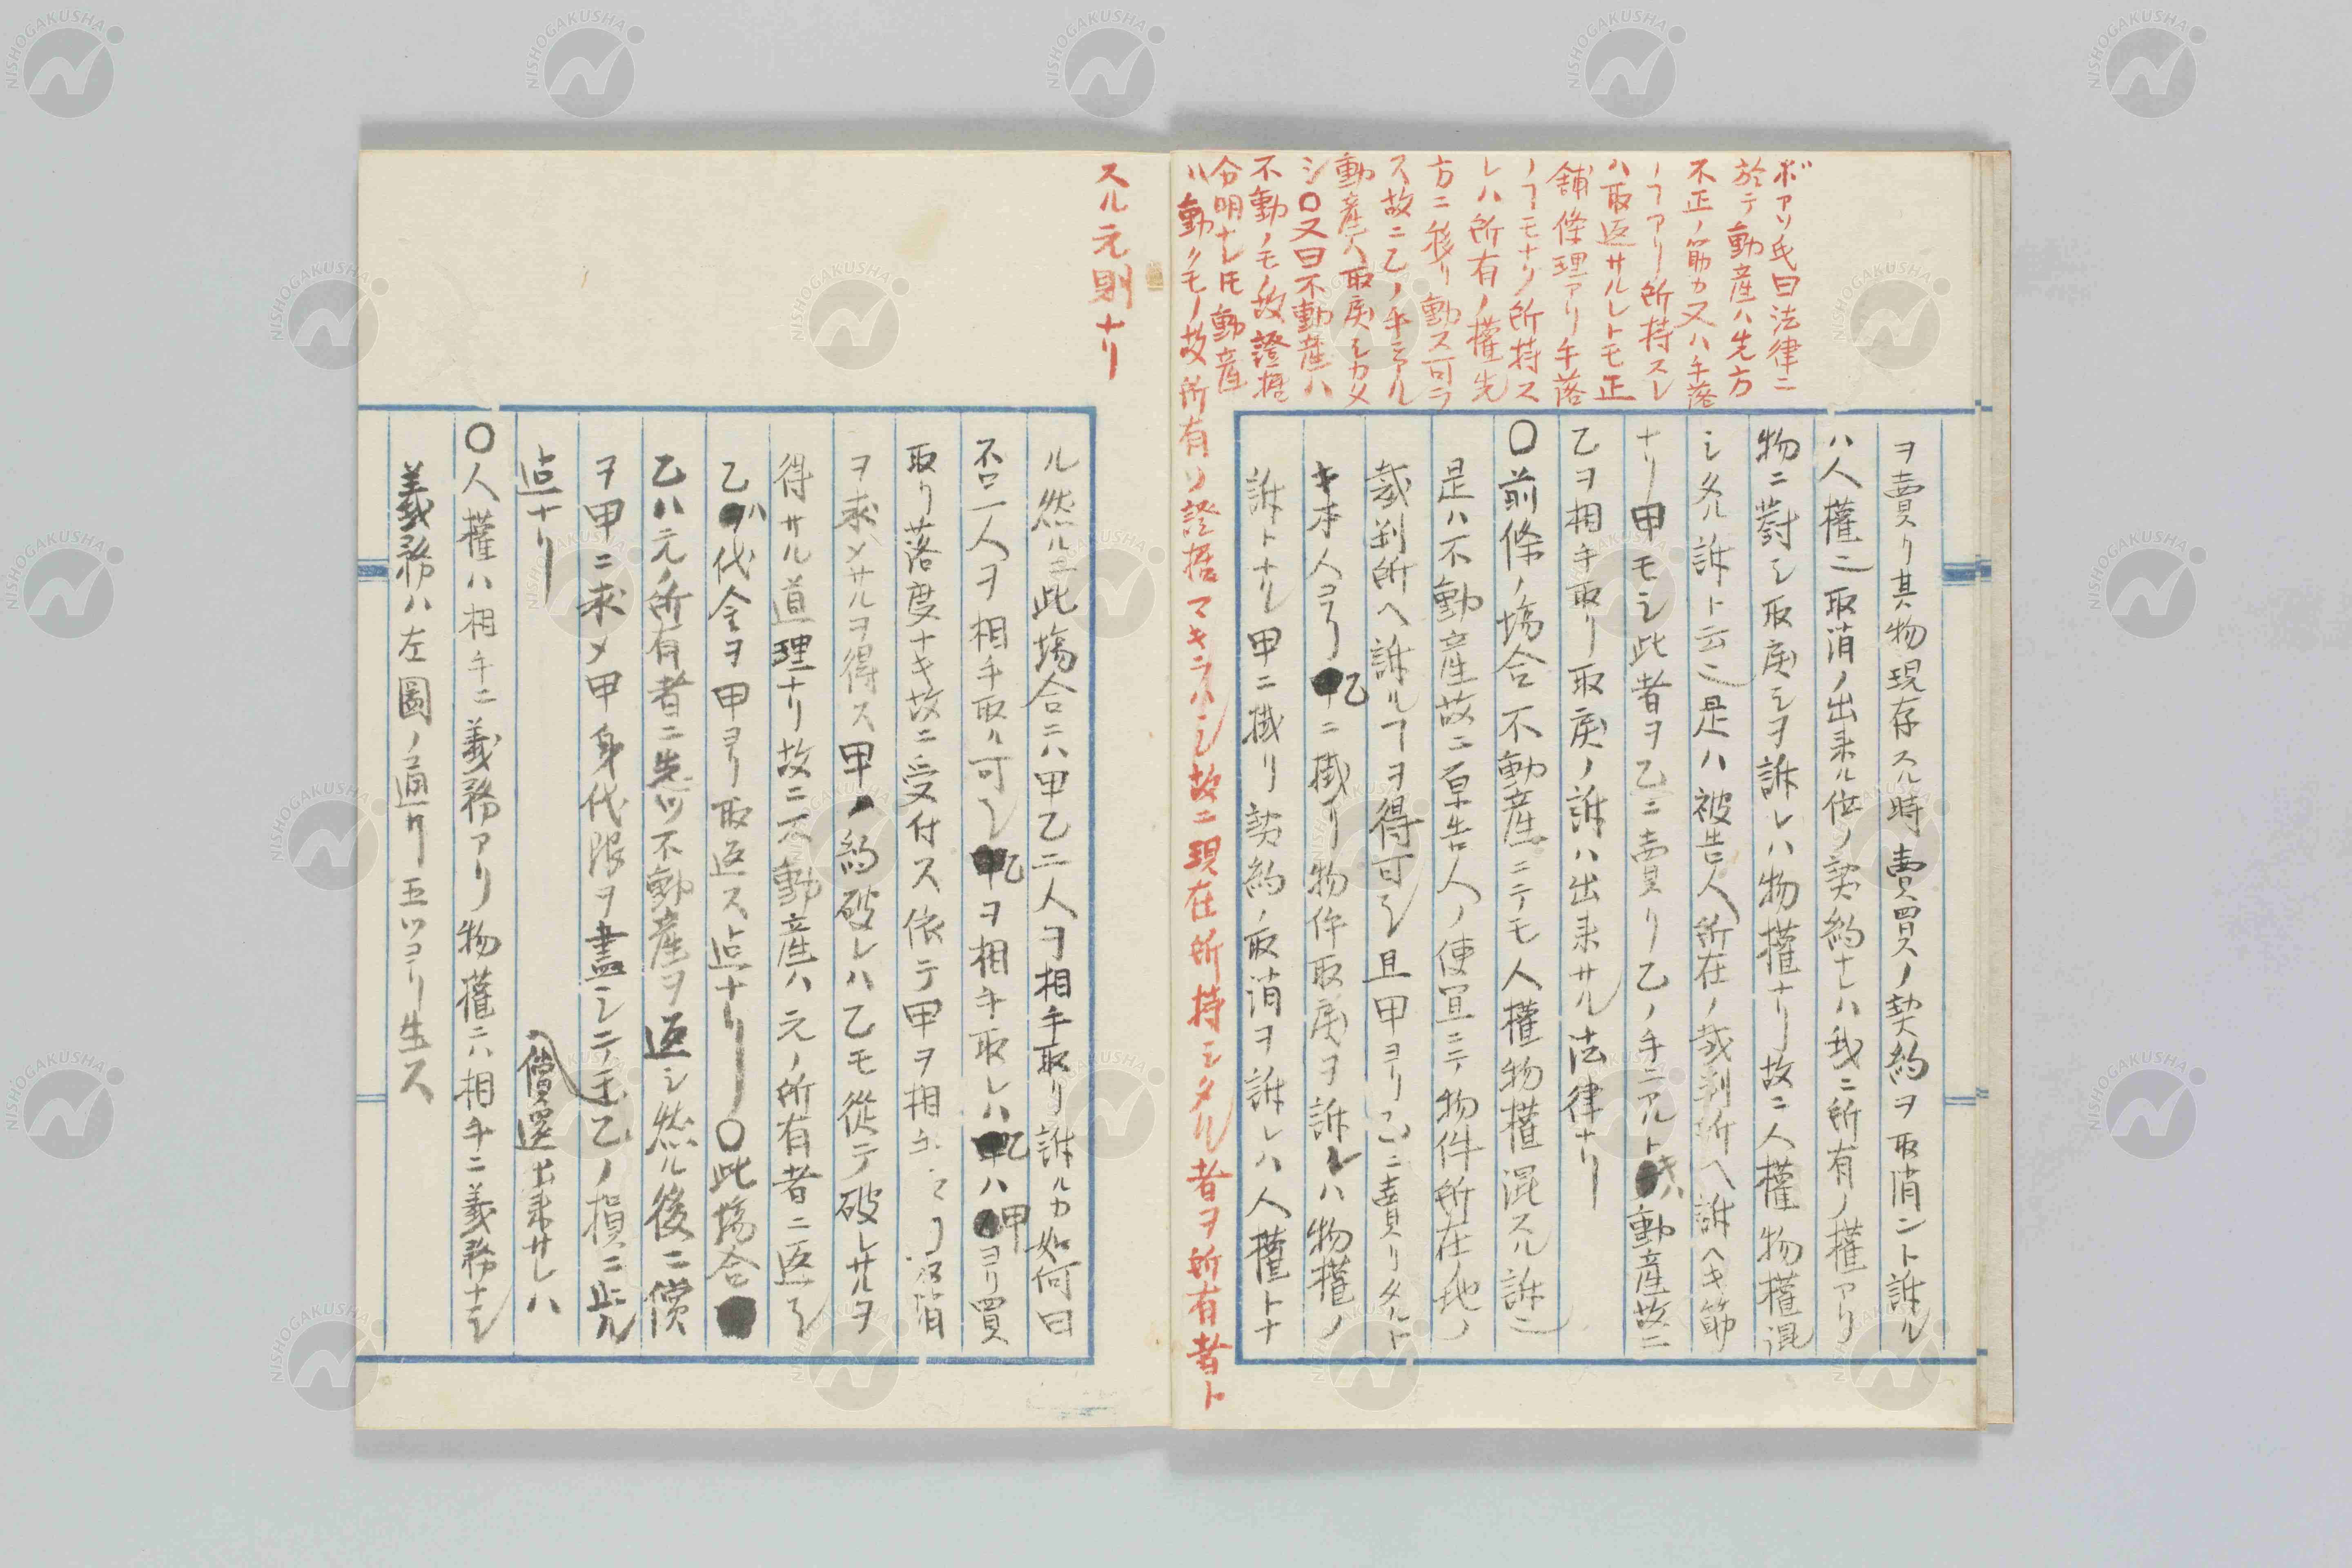 ボアソ氏曰法律ニ
於テ動産ハ先方
不正ノ筋カ又ハ手落
ノヿアリ所持スレ
ハ取返サルレトモ正
舗條理アリ手落
ノヿモナク所持ス
レハ所有ノ權先
方ニ移リ動ス可ラ
ス故ニ乙ノ手ニアル
動産ハ取戻シカタ
シ〇又曰不動産ハ
不動ノモノ故證據
分明ナレ𪜈動産
ハ動クモノ故所有ソ證据マキラハシ故ニ現在所持シタル者ヲ所有者ト
ヲ賣リ其物現存スル時賣買ノ契約ヲ取消ント訴ル
ハ人權ニ取消ノ出来ル位ノ契約ナレハ我ニ所有ノ權アリ
物ニ對シ取戻シヲ訴レハ物權ナリ故ニ人權物權混
シタル訴ト云ニ是ハ被告人所在ノ裁判所ヘ訴ヘキ筋
ナリ甲モシ此者ヲ乙ニ賣リ乙ノ手ニアルトキハ動産故ニ
乙ヲ相手取リ取戻ノ訴ハ出来サル法律ナリ
〇前條ノ塲合不動産ニテモ人權物權混スル訴ニ
是ハ不動産故ニ原告人ノ便宜ニテ物件所在ノ地ノ
裁判所ヘ訴ルヿヲ得可シ且甲ヨリ乙ニ賣リタルト
キ本人ヨリ乙ニ掛リ物件取戻ヲ訴レハ物權ノ
訴トナリ甲ニ掛リ契約ノ取消ヲ訴レハ人權トナ
スル元則ナリ
ル然ルニ此塲合ニハ甲乙二人ヲ相手取リ訴ルカ如何曰
否一人ヲ相手取ル可シ乙ヲ相手取レハ乙ハ甲ヨリ買
取リ落度ナキ故ニ受付ス依テ甲ヲ相手トリ取消
ヲ求メサルヲ得ス甲ノ約破レハ乙モ從テ破レサルヲ
得サル道理ナリ故ニ不動産ハ元ノ所有者ニ返シ
乙ハ代金ヲ甲ヨリ取返ス迠ナリ〇此塲合
乙ハ元ノ所有者ニ先ツ不動産ヲ返シ然ル後ニ償
ヲ甲ニ求メ甲身代限ヲ盡シテモ乙ノ損ニ止ル
迠ナリ 償還出来サレハ
〇人權ハ相手ニ義務アリ物權ニハ相手ニ義務ナシ
義務ハ左圖ノ通リ五ツヨリ生ス